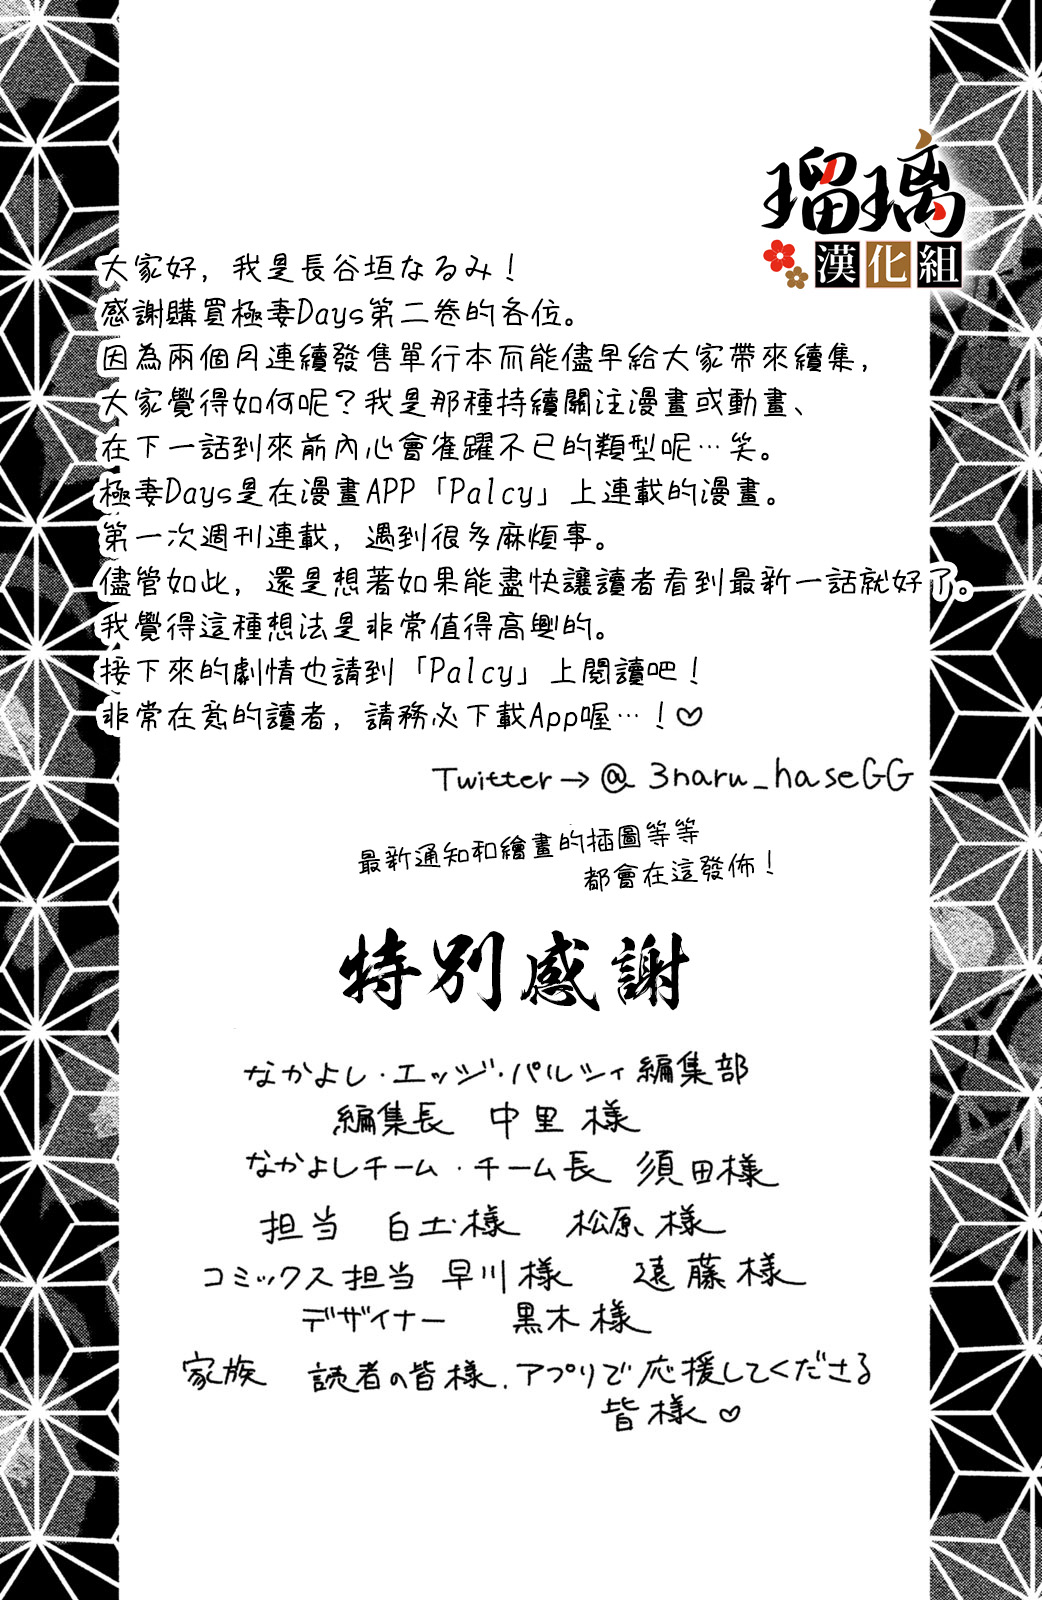 瑠璃
漢化組
大家好，我是長谷垣なるみ！
感謝購買極妻Days第二卷的各位。
因為兩個月連續發售單行本而能儘早給大家帶來續集，
大家覺得如何呢？我是那種持續關注漫畫或動畫、
在下一話到來前內心會雀躍不已的類型呢…笑。
極妻Days是在漫畫APP「Palcy」上連載的漫畫。
第一次週刊連載，遇到很多麻煩事。
儘管如此，還是想著如果能盡快讓讀者看到最新一話就好了。
我覺得這種想法是非常值得高興的。
接下來的劇情也請到「Palcy」上閱讀吧！
非常在意的讀者，請務必下載App喔…！♡
Twitter→@3naru_haseGG
最新通知和繪畫的插圖等等
都會在這發佈！
特別感謝
なかよし・エッジ・パルシィ編集部
編集長 中里様
なかよしチーム・チーム長 須田様
担当 白土様 松原様
コミックス担当 早川様 遠藤様
デザイナー 黒木様
家族 読者の皆様、アプリで応援してくださる
皆様♡